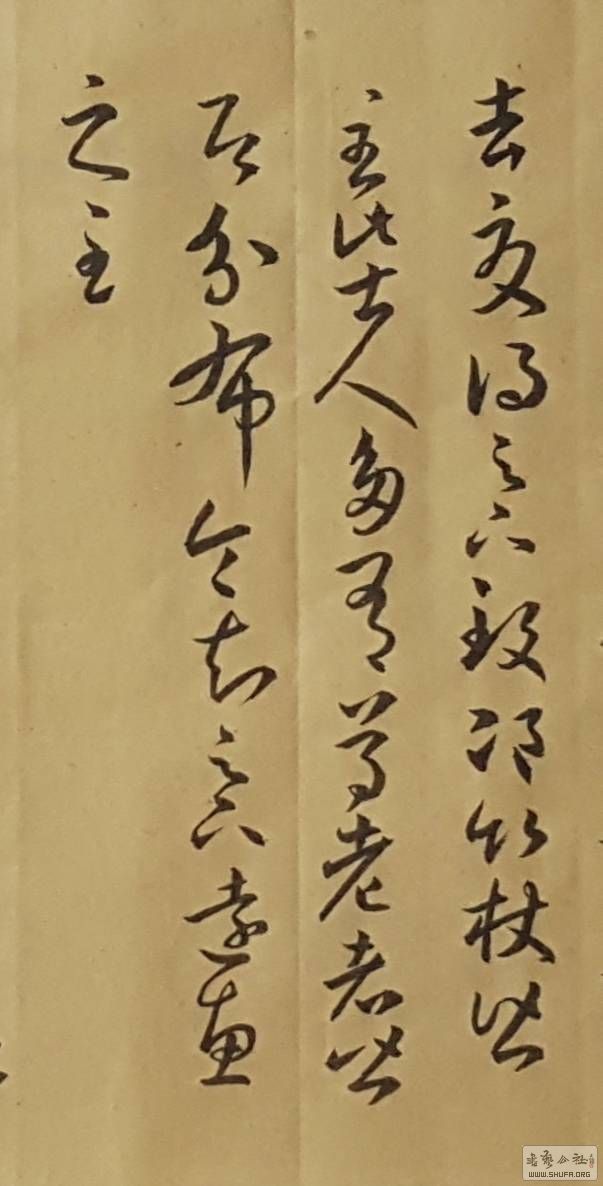 去夏得足下致邛竹杖皆
至此士人多有尊老者皆
即分布令知足下遠惠
之至
書藝公社
WWW.SHUFA.ORG